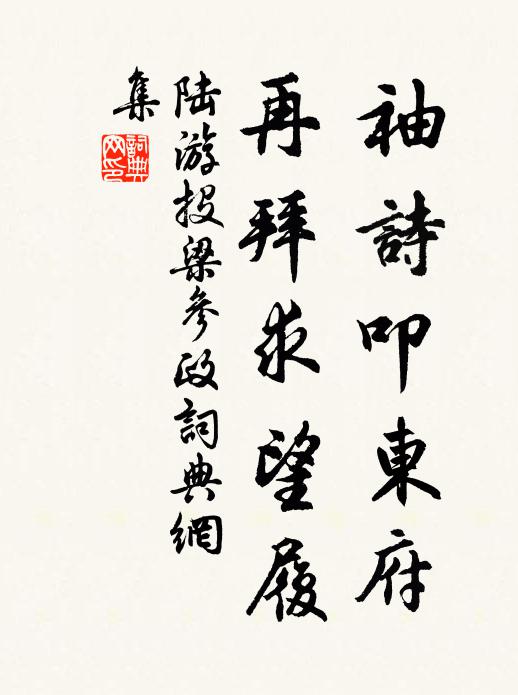 袖詩叩東府
再拜求望履
陸游投梁參政詞典網
集
詞典
网印